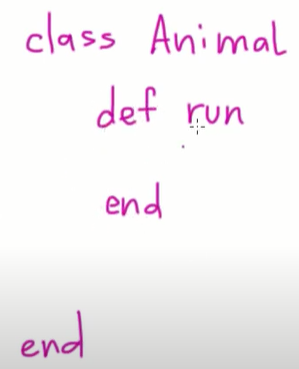 class Animal
def run
end
end